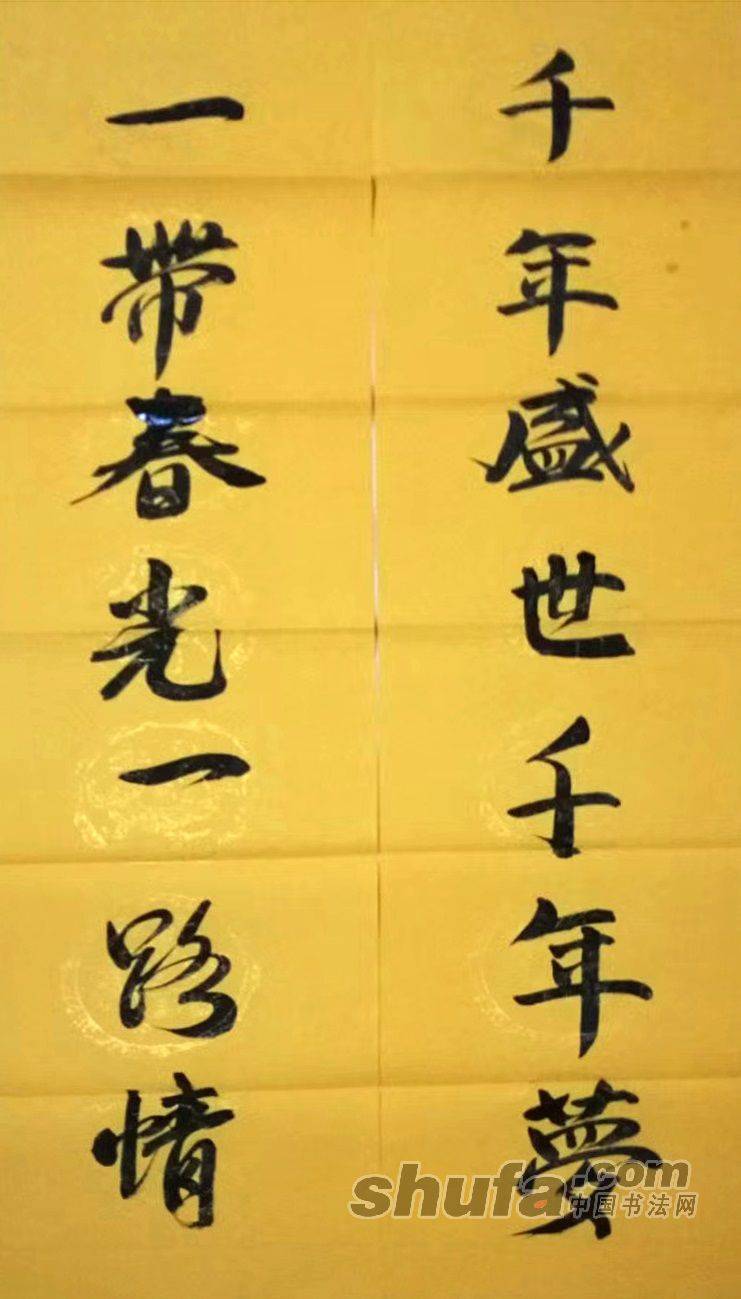 千年盛世千年夢
一帶春光一路情
shufa.com
中国书法网